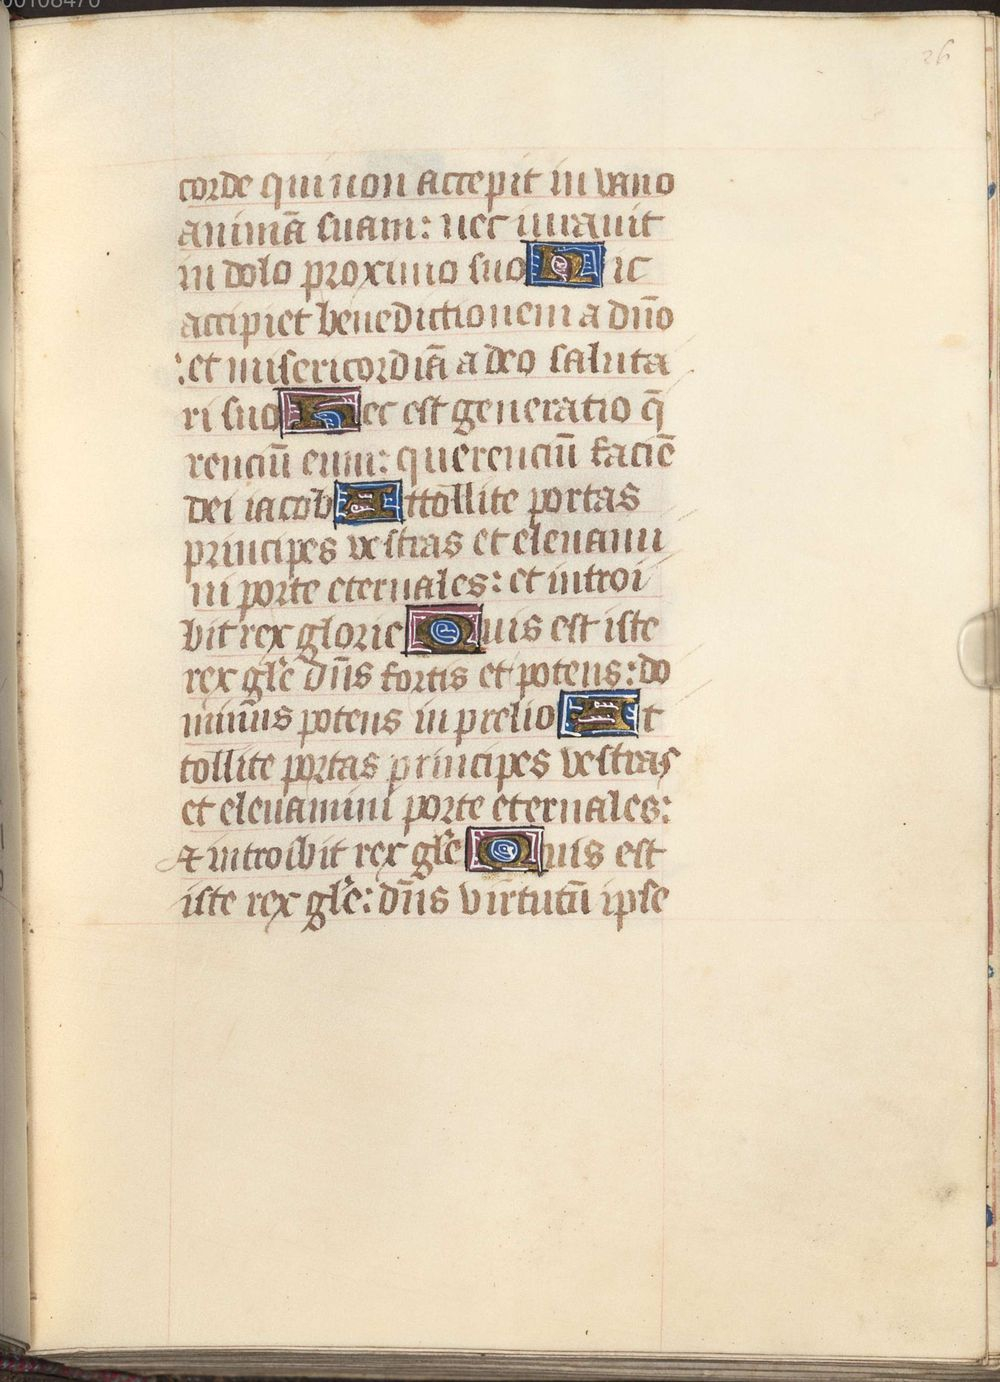 00108470
26
corde qui non accepit in vano
animā suam: nec iuravit
in dolo proximo suo Hic
accipiet benedictionem a dño
:et misericordiā a deo saluta
ri suo Hec est generatio q̄
renciū eum: querenciū faciē
dei iacob Attollite portas
principes vestras et elevami
ni porte eternales: et introi
bit rex glorie Quis est iste
rex glē dñs fortis et potens: do
minus potens in prelio At
tollite portas principes vestras
et elevamini porte eternales:
et introibit rex glē Quis est
iste rex glē: dñs virtutū ipse